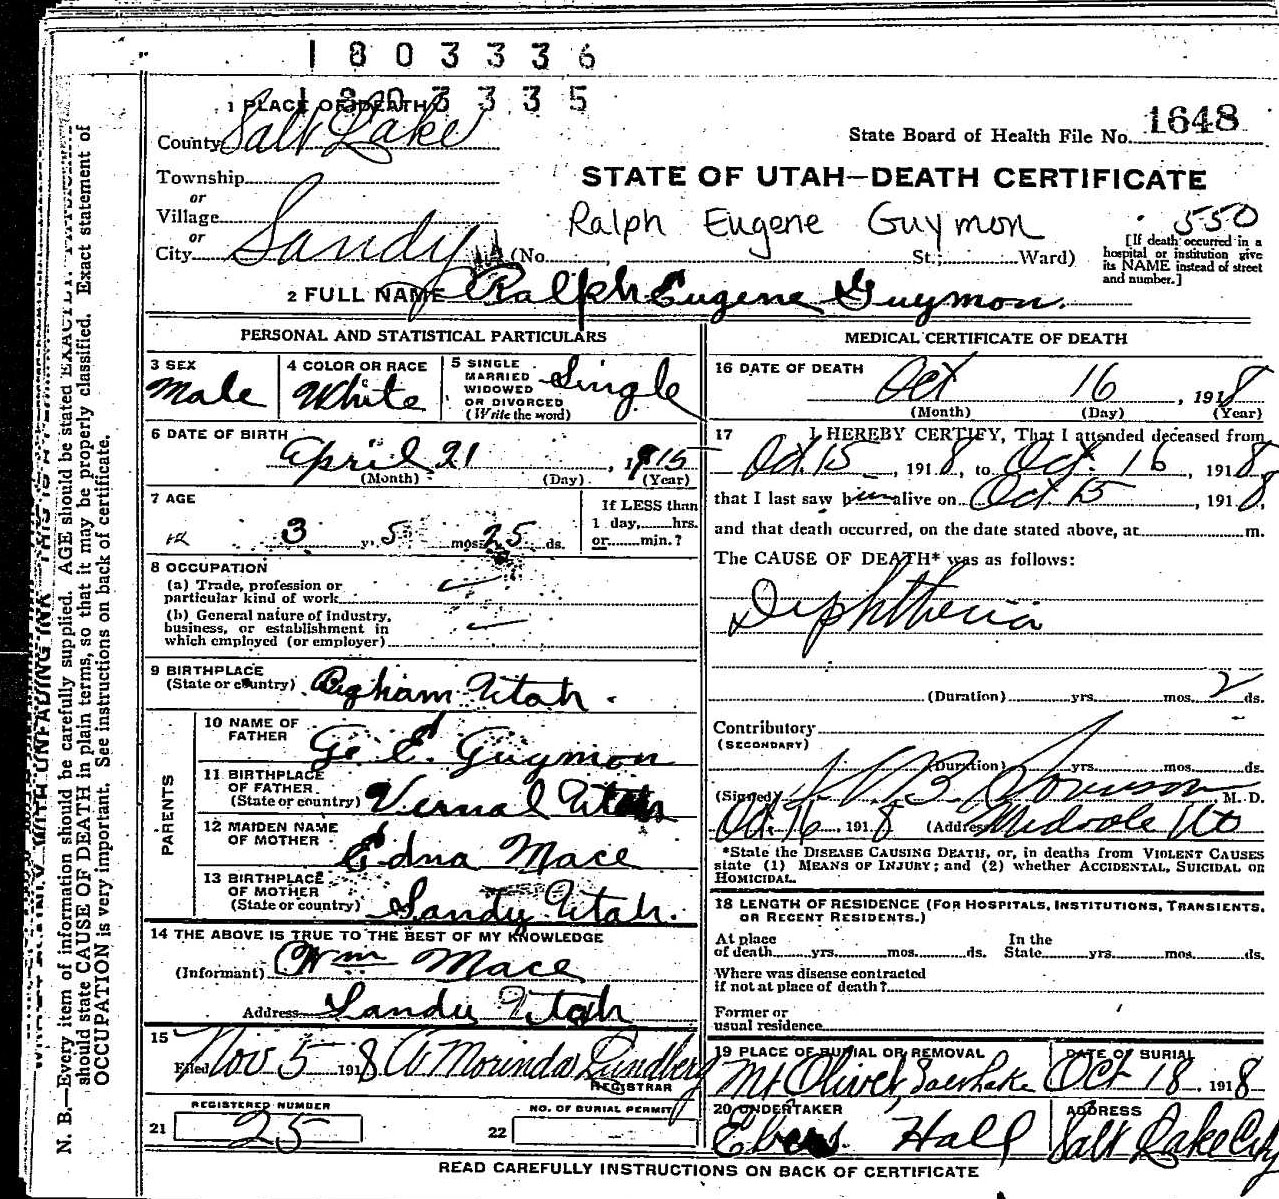 1803336
1803335
1 PLACE OF DEATH
County Salt Lake
State Board of Health File No. 1648
Township
or
Village
or
City Sandy
STATE OF UTAH—DEATH CERTIFICATE
Ralph Eugene Guymon
550
(No. St.; Ward)
[If death occurred in a
hospital or institution give
its NAME instead of street
and number.]
2 FULL NAME Ralph Eugene Guymon.
PERSONAL AND STATISTICAL PARTICULARS
3 SEX
Male
4 COLOR OR RACE
White
5 SINGLE
MARRIED
WIDOWED
OR DIVORCED
(Write the word)
Single
6 DATE OF BIRTH
April 21, 1915
(Month) (Day) (Year)
7 AGE
3 y. 5 mos. 25 ds.
If LESS than
1 day, hrs.
or min.?
8 OCCUPATION
(a) Trade, profession or
particular kind of work
(b) General nature of industry,
business, or establishment in
which employed (or employer)
9 BIRTHPLACE
(State or country) Bigham Utah.
PARENTS
10 NAME OF
FATHER
Ge E. Guymon
11 BIRTHPLACE
OF FATHER
(State or country) Vernal Utah
12 MAIDEN NAME
OF MOTHER
Edna Mace
13 BIRTHPLACE
OF MOTHER
(State or country) Sandy Utah.
14 THE ABOVE IS TRUE TO THE BEST OF MY KNOWLEDGE
(Informant) Wm Mace
Address Sandy Utah
15
Filed Nov 5 1918 A Morinda Lundberg
REGISTRAR
REGISTERED NUMBER
21 25
NO. OF BURIAL PERMIT
22
MEDICAL CERTIFICATE OF DEATH
16 DATE OF DEATH
Oct 16, 1918
(Month) (Day) (Year)
17 I HEREBY CERTIFY, That I attended deceased from
Oct. 15, 1918, to Oct. 16, 1918,
that I last saw him alive on Oct 15, 1918,
and that death occurred, on the date stated above, at m.
The CAUSE OF DEATH* was as follows:
Diphtheria
(Duration) yrs. mos. 2 ds.
Contributory
(SECONDARY)
(Duration) yrs. mos. ds.
(Signed) M. D.
Oct. 16, 1918 (Address) Midvale Ut
*State the DISEASE CAUSING DEATH, or, in deaths from VIOLENT CAUSES
state (1) MEANS OF INJURY; and (2) whether ACCIDENTAL, SUICIDAL OR
HOMICIDAL.
18 LENGTH OF RESIDENCE (FOR HOSPITALS, INSTITUTIONS, TRANSIENTS,
OR RECENT RESIDENTS.)
At place
of death yrs. mos. ds.
In the
State yrs. mos. ds.
Where was disease contracted
if not at place of death?
Former or
usual residence
19 PLACE OF BURIAL OR REMOVAL
Mt Olivet, Salt Lake
DATE OF BURIAL
Oct 18. 1918
20 UNDERTAKER
Eber Hall
ADDRESS
Salt Lake City
READ CAREFULLY INSTRUCTIONS ON BACK OF CERTIFICATE
N. B.—Every item of information should be carefully supplied. AGE should be stated EXACTLY.
should state CAUSE OF DEATH in plain terms, so that it may be properly classified. Exact statement of
OCCUPATION is very important. See instructions on back of certificate.